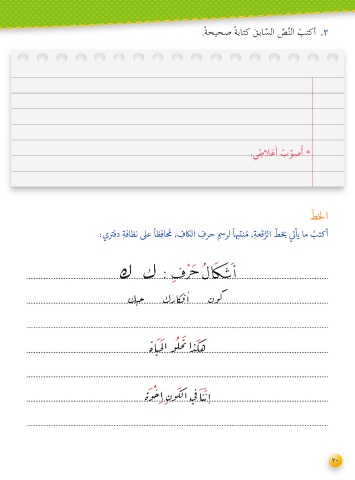 ٣. أكتبُ النَّصَّ السّابقَ كتابةً صحيحةً.
* أصوّبُ أغلاطي.
الخطّ
أكتبُ ما يأتي بخطّ الرُّقعةِ، مُنتبهاً لرسمِ حرفِ الكافِ، مُحافِظاً على نظافةِ دفتري:
أشكالُ حَرْفِ : ك ك
كون أفكارك حبك
هكَذا تَحلُو الحَيَاة
إنَّنَا في الكَونِ إخْوَة
٢٠